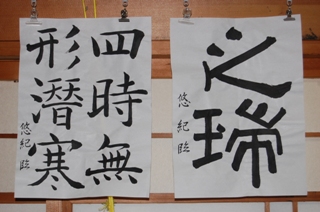 四時無
形潛寒
悠紀臨
之瑞
悠紀臨